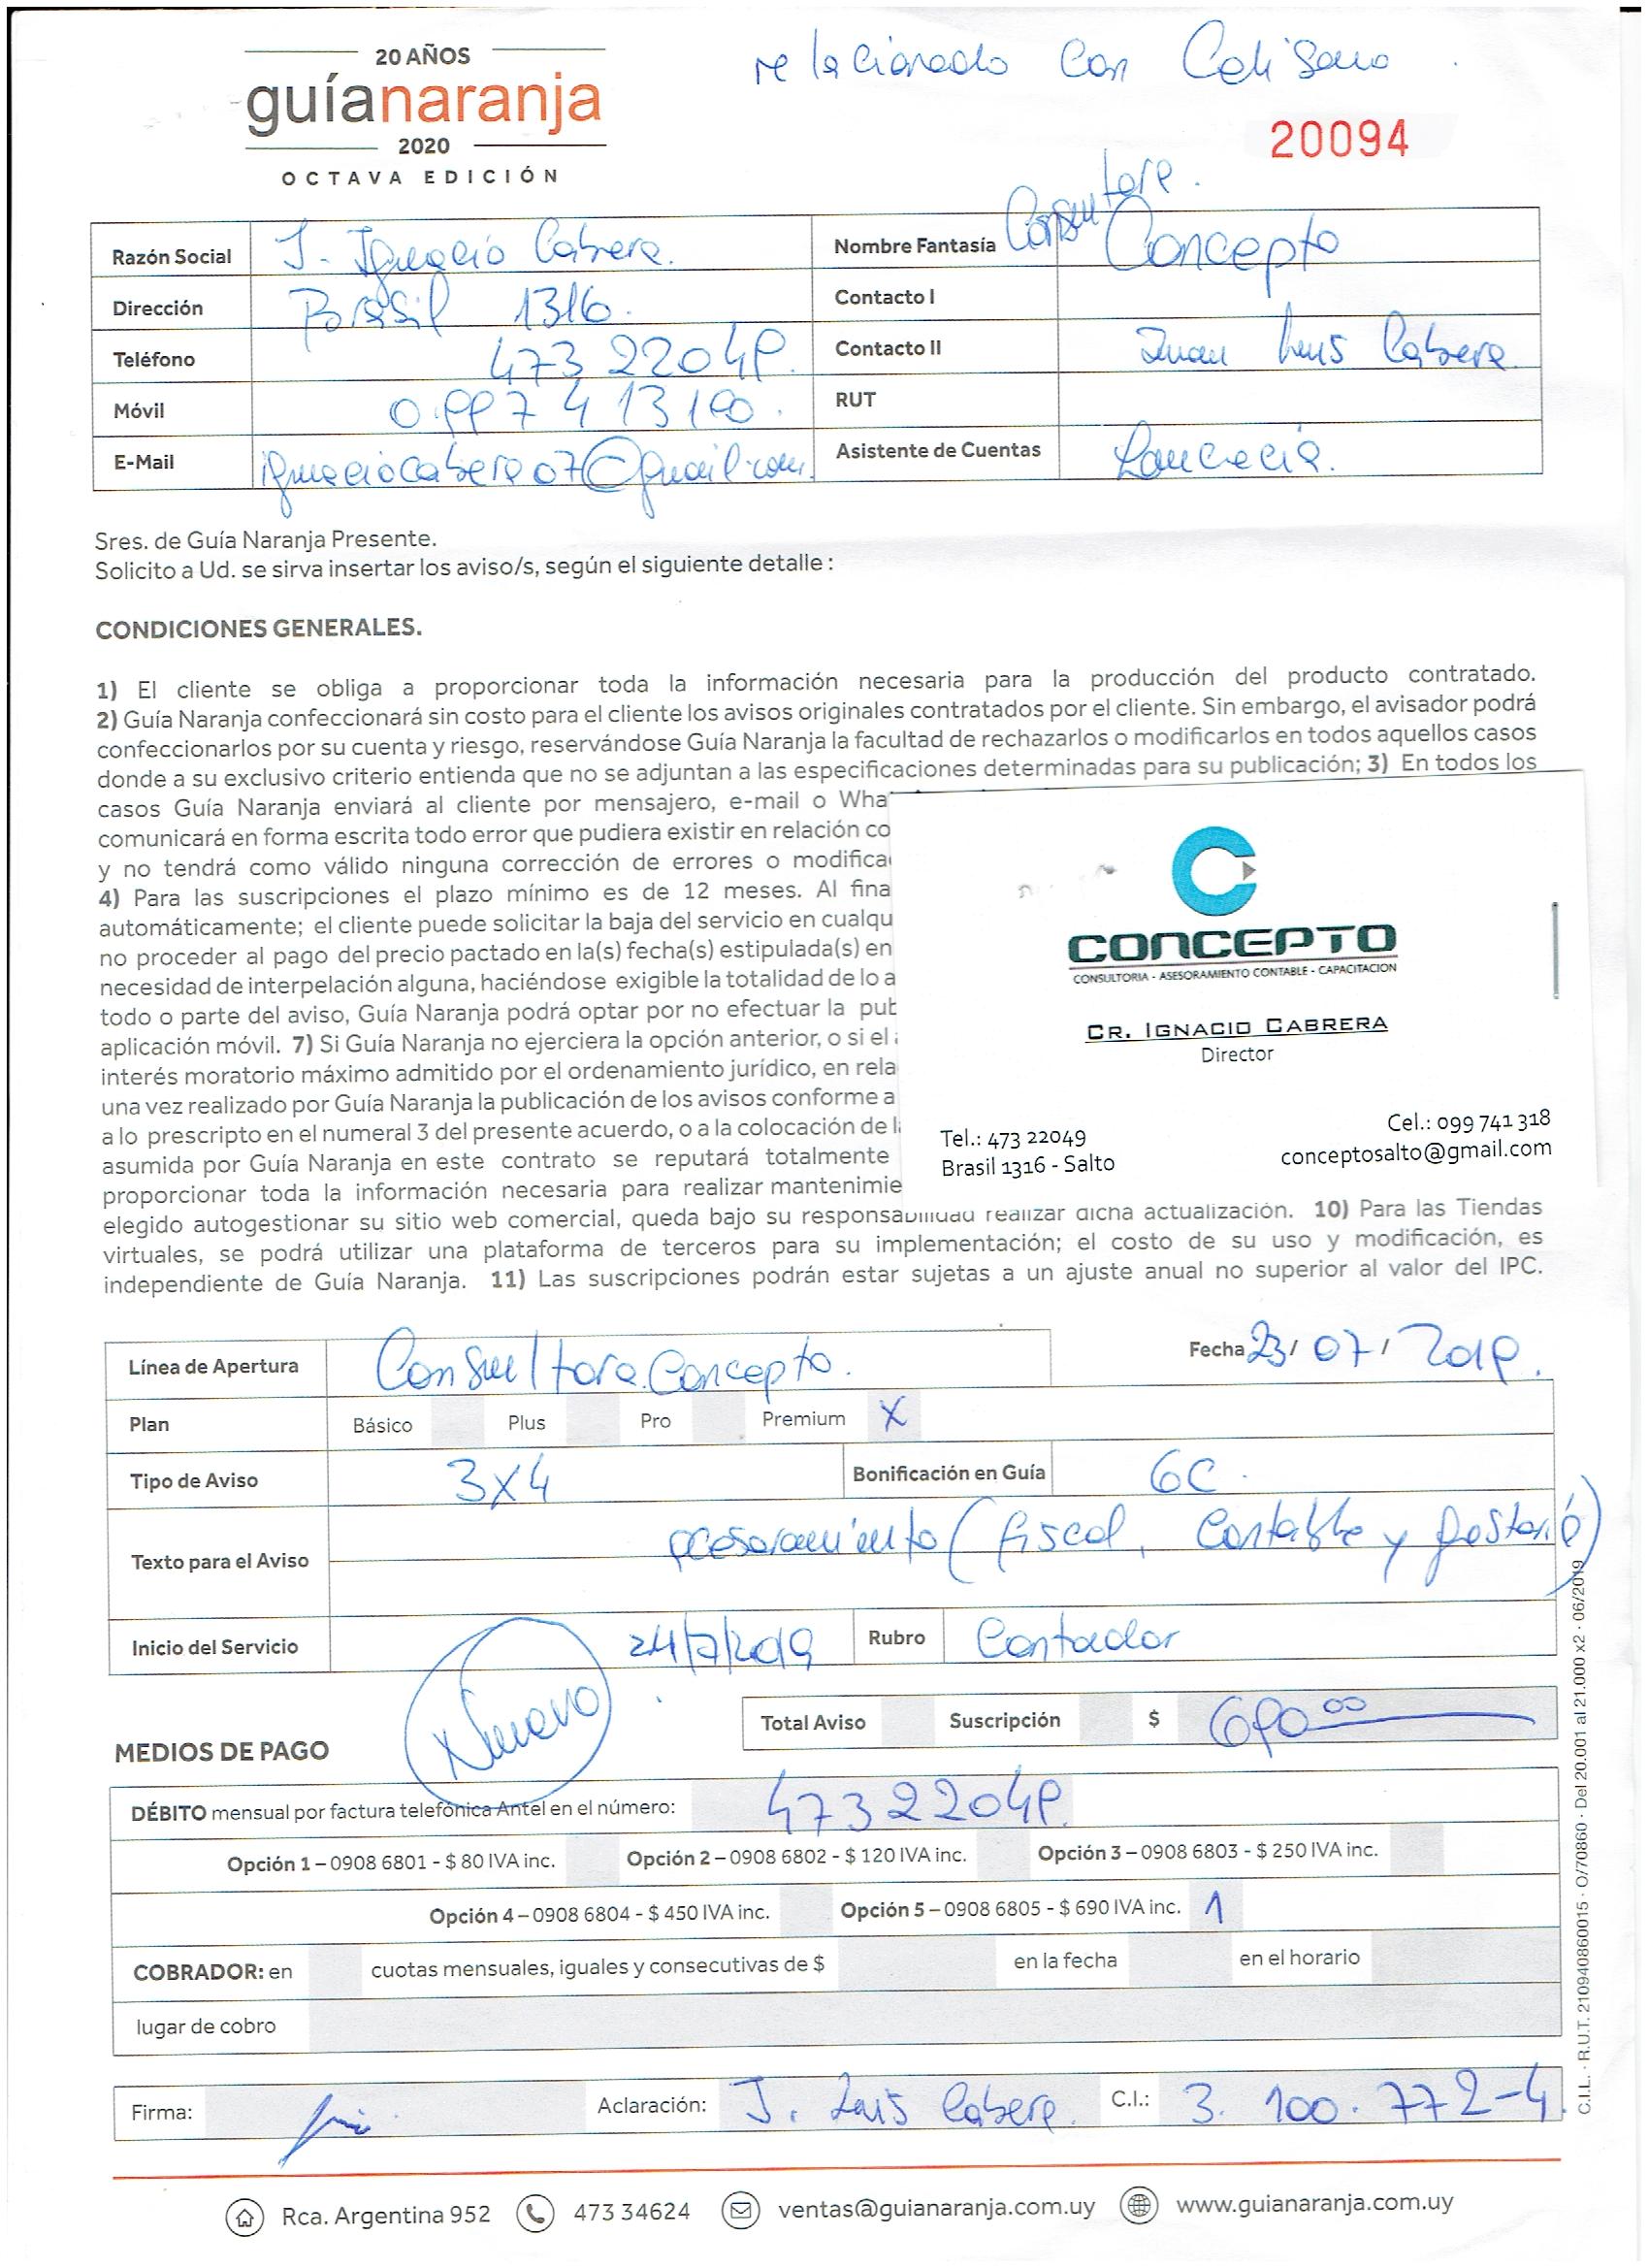 20 AÑOS
guíanaranja
2020
OCTAVA EDICIÓN
relacionado con
20094
Razón Social J. Ignacio Cabrera.
Nombre Fantasía Consultora. Concepto
Dirección Brasil 1316.
Contacto I
Teléfono 473 22049.
Contacto II Juan Luis Cabrera
Móvil
RUT
E-Mail ignaciocabrera07@gmail.com.
Asistente de Cuentas
Sres. de Guía Naranja Presente.
Solicito a Ud. se sirva insertar los aviso/s, según el siguiente detalle :
CONDICIONES GENERALES.
1) El cliente se obliga a proporcionar toda la información necesaria para la producción del producto contratado.
2) Guía Naranja confeccionará sin costo para el cliente los avisos originales contratados por el cliente. Sin embargo, el avisador podrá
confeccionarlos por su cuenta y riesgo, reservándose Guía Naranja la facultad de rechazarlos o modificarlos en todos aquellos casos
donde a su exclusivo criterio entienda que no se adjuntan a las especificaciones determinadas para su publicación; 3) En todos los
casos Guía Naranja enviará al cliente por mensajero, e-mail o Wha
comunicará en forma escrita todo error que pudiera existir en relación co
y no tendrá como válido ninguna corrección de errores o modifica
4) Para las suscripciones el plazo mínimo es de 12 meses. Al fina
automáticamente; el cliente puede solicitar la baja del servicio en cualqu
no proceder al pago del precio pactado en la(s) fecha(s) estipulada(s) en
necesidad de interpelación alguna, haciéndose exigible la totalidad de lo a
todo o parte del aviso, Guía Naranja podrá optar por no efectuar la pub
aplicación móvil. 7) Si Guía Naranja no ejerciera la opción anterior, o si el
interés moratorio máximo admitido por el ordenamiento jurídico, en rela
una vez realizado por Guía Naranja la publicación de los avisos conforme a
a lo prescripto en el numeral 3 del presente acuerdo, o a la colocación de l
asumida por Guía Naranja en este contrato se reputará totalmente
proporcionar toda la información necesaria para realizar mantenimie
elegido autogestionar su sitio web comercial, queda bajo su responsabilidad realizar dicha actualización. 10) Para las Tiendas
virtuales, se podrá utilizar una plataforma de terceros para su implementación; el costo de su uso y modificación, es
independiente de Guía Naranja. 11) Las suscripciones podrán estar sujetas a un ajuste anual no superior al valor del IPC.
CONCEPTO
CONSULTORIA - ASESORAMIENTO CONTABLE - CAPACITACION
CR. IGNACIO CABRERA
Director
Tel.: 473 22049
Brasil 1316 - Salto
Cel.: 099 741 318
conceptosalto@gmail.com
Línea de Apertura Consultora Concepto.
Fecha 23/ 07/ 2019.
Plan Básico Plus Pro Premium X
Tipo de Aviso 3x4
Bonificación en Guía 6C.
Texto para el Aviso asesoramiento (fiscal, contable y
Inicio del Servicio 24/7/2019
Rubro Contador
Nuevo
Total Aviso Suscripción $ 690 00
MEDIOS DE PAGO
DÉBITO mensual por factura telefónica Antel en el número: 47322049.
Opción 1 – 0908 6801 - $ 80 IVA inc. Opción 2 – 0908 6802 - $ 120 IVA inc. Opción 3 – 0908 6803 - $ 250 IVA inc.
Opción 4 – 0908 6804 - $ 450 IVA inc. Opción 5 – 0908 6805 - $ 690 IVA inc. 1
COBRADOR: en cuotas mensuales, iguales y consecutivas de $ en la fecha en el horario
lugar de cobro
Firma:
Aclaración: J. Luis Cabrera.
C.I.: 3. 100. 772-4
C.I.L. · R.U.T. 210940860015 · O/70860 · Del 20.001 al 21.000 x2 · 06/2019
Rca. Argentina 952 473 34624 ventas@guianaranja.com.uy www.guianaranja.com.uy